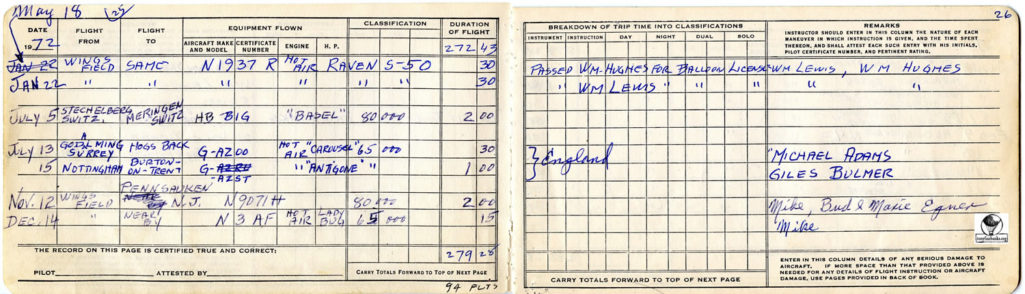 May 18
26
DATE
1972
FLIGHT FROM
FLIGHT TO
EQUIPMENT FLOWN
AIRCRAFT MAKE AND MODEL
CERTIFICATE NUMBER
ENGINE
H. P.
CLASSIFICATION
DURATION OF FLIGHT
272 43
BREAKDOWN OF TRIP TIME INTO CLASSIFICATIONS
INSTRUMENT
INSTRUCTION
DAY
NIGHT
DUAL
SOLO
REMARKS
INSTRUCTOR SHOULD ENTER IN THIS COLUMN THE NATURE OF EACH
MANEUVER IN WHICH INSTRUCTION IS GIVEN, AND THE TIME SPENT
THEREON, AND SHALL ATTEST EACH SUCH ENTRY WITH HIS INITIALS,
PILOT CERTIFICATE NUMBER, AND PERTINENT RATING.
JAN 22 WINGS FIELD SAME N1937 R HOT AIR RAVEN S-50 30 PASSED WM. HUGHES FOR BALLOON LICENSE WM LEWIS, WM HUGHES
JAN 22 " " " " " " 30 " WM LEWIS " " " "
JULY 5 STECHELBERG SWITZ. MERINGEN SWITZ HB BIG "BADEL" 80,000 2 00
JULY 13 GODALMING SURREY HOGS BACK G-AZOO HOT AIR "CAROUSEL" 65,000 30 } England "MICHAEL ADAMS
15 NOTTINGHAM BURTON-ON-TRENT G-AZRU AZST " " "ANTIGONE" " 1 00 GILES BULMER
NOV. 12 WINGS FIELD PENNSAUKEN N.J. N9071H 80,000 2 00 Mike, Bud & Maxie Egner
DEC. 14 " NEAR BY N 3 AF HOT AIR LADY BUG 65,000 15 "Mike"
THE RECORD ON THIS PAGE IS CERTIFIED TRUE AND CORRECT:
279 28
PILOT
ATTESTED BY
CARRY TOTALS FORWARD TO TOP OF NEXT PAGE
94 FLTS
CARRY TOTALS FORWARD TO TOP OF NEXT PAGE
ENTER IN THIS COLUMN DETAILS OF ANY SERIOUS DAMAGE TO
AIRCRAFT. IF MORE SPACE THAN THAT PROVIDED ABOVE IS
NEEDED FOR ANY DETAILS OF FLIGHT INSTRUCTION OR AIRCRAFT
DAMAGE, USE PAGES PROVIDED IN BACK OF BOOK.